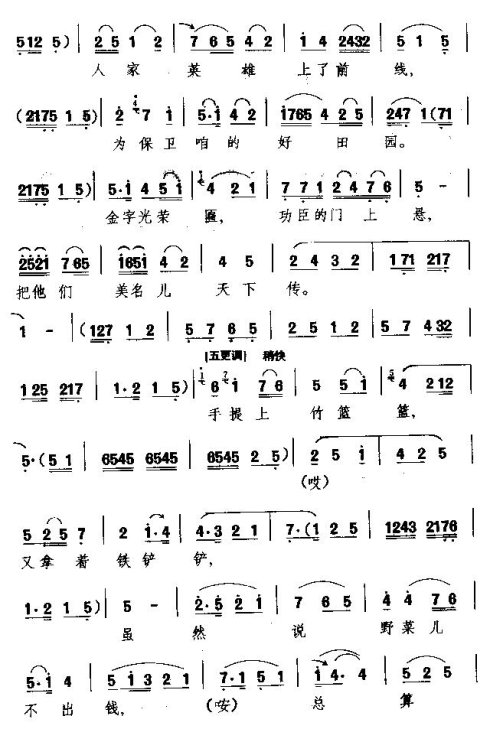 5125) | 25 12 | 7 65 42 | i4 2432 | 5 1 5 |
人家 英雄 上了前线,
(2175 15) | 2 71 | 5·1 42 | 1765 425 | 247 1(71
为保卫咱的好田园。
2175 15) | 5·1 451 | 4 21 | 771 2476 | 5 - |
金字光荣匾, 功臣的门上悬,
2521 765 | 1651 42 | 4 5 | 2 4 3 2 | 171 217 |
把他们 美名儿 天下传。
1 - | (127 12 | 5 7 6 5 | 2 5 1 2 | 5 7 432 |
[五更调] 稍快
125 217 | 1·2 15) | 6 1 76 | 5 51 | 4 212 |
手提上 竹篮篮,
5·(51 | 6545 6545 | 6545 25) | 2 5 1 | 4 2 5 |
(哎)
5 25 7 | 2 1·4 | 4·3 21 | 7·(1 25 | 1243 2176 |
又拿着铁铲铲,
1·2 15) | 5 - | 2·5 21 | 7 65 | 4 4 76 |
虽然说 野菜儿
5·1 4 | 51321 | 7·1 51 | 14·4 | 5 2 5 |
不出钱, (唉) 总算